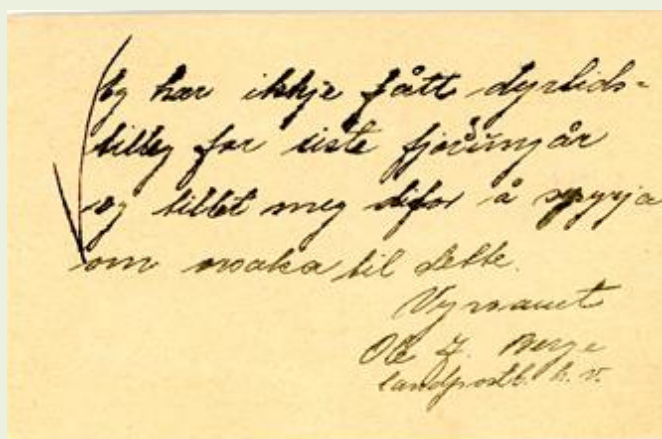 Eg har ikkje fått dyrtids-
tilleg for siste fjoringår
eg tillet meg difor å spyrja
om orsaka til dette.
Vyrdsamt
Ole J. Berge
landpostb. h. v.